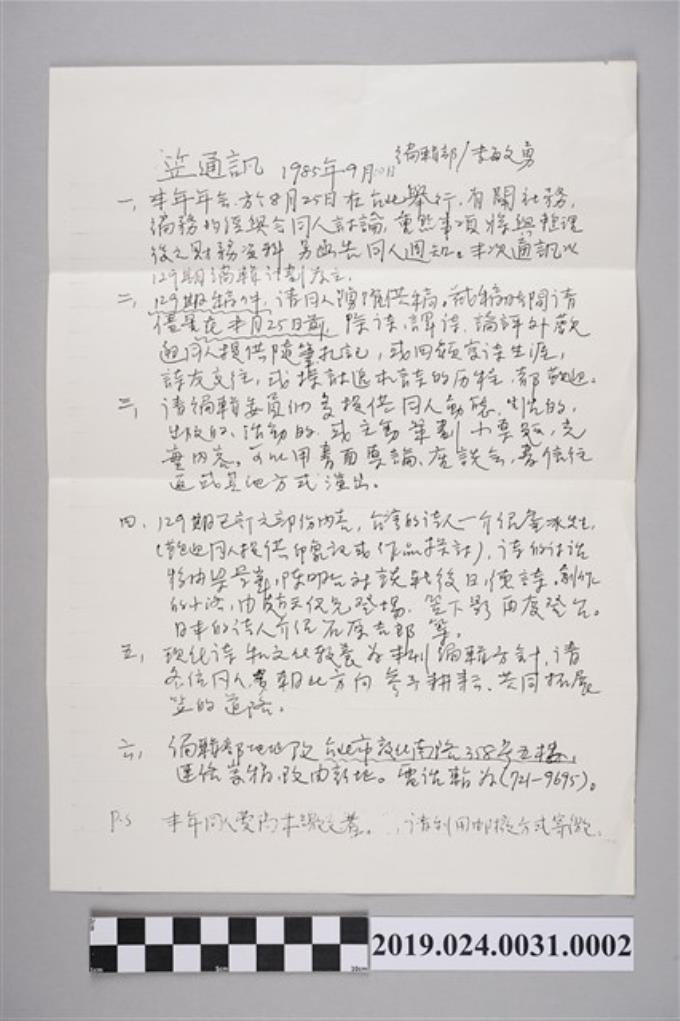 笠通訊 1985年9月10日 編輯部/李敏勇
一、本年年会方於8月25日在台北舉行,有關社務,
編務均經與会同人討論,重点事項將與整理
後之財務資料另函告同人週知。本次通訊以
129期編輯計劃為主.
二、129期稿件,請同人踴躍供稿。截稿时間請
儘量在本月25日前,除詩、譯詩、論評外歡
迎同人提供隨筆札記,或回顧寫詩生涯,
詩友交往,或探討近本詩的历程,都歡迎.
三、請編輯委員们多提供同人動態,
出版的、活動的.或主動筆劃小專題,充
實內容。可以用書面專論、座談会,書信往
返或其他方式演出。
四、129期已計定部份内容,台湾的詩人一介紹
(歡迎同人提供印象記或作品探討),詩的对话
將由梁景峯,陳明台对談戰後日,德詩.創作
的 由 登場.笠下影再度登台。
日本的詩人介绍石原吉郎等。
五、現代詩和文化教養為本刊編輯方針,請
各位同人朝此方向參予耕耘.共同拓展
笠的道路。
六、編輯部地址改台北市敦化南路358号五樓,
連絡寄稿,改由新地。電话號為(721-9695)。
P.S 本年同人費尚未繳交者,請利用郵撥方式寄繳.
2019.024.0031.0002
5cm
10cm